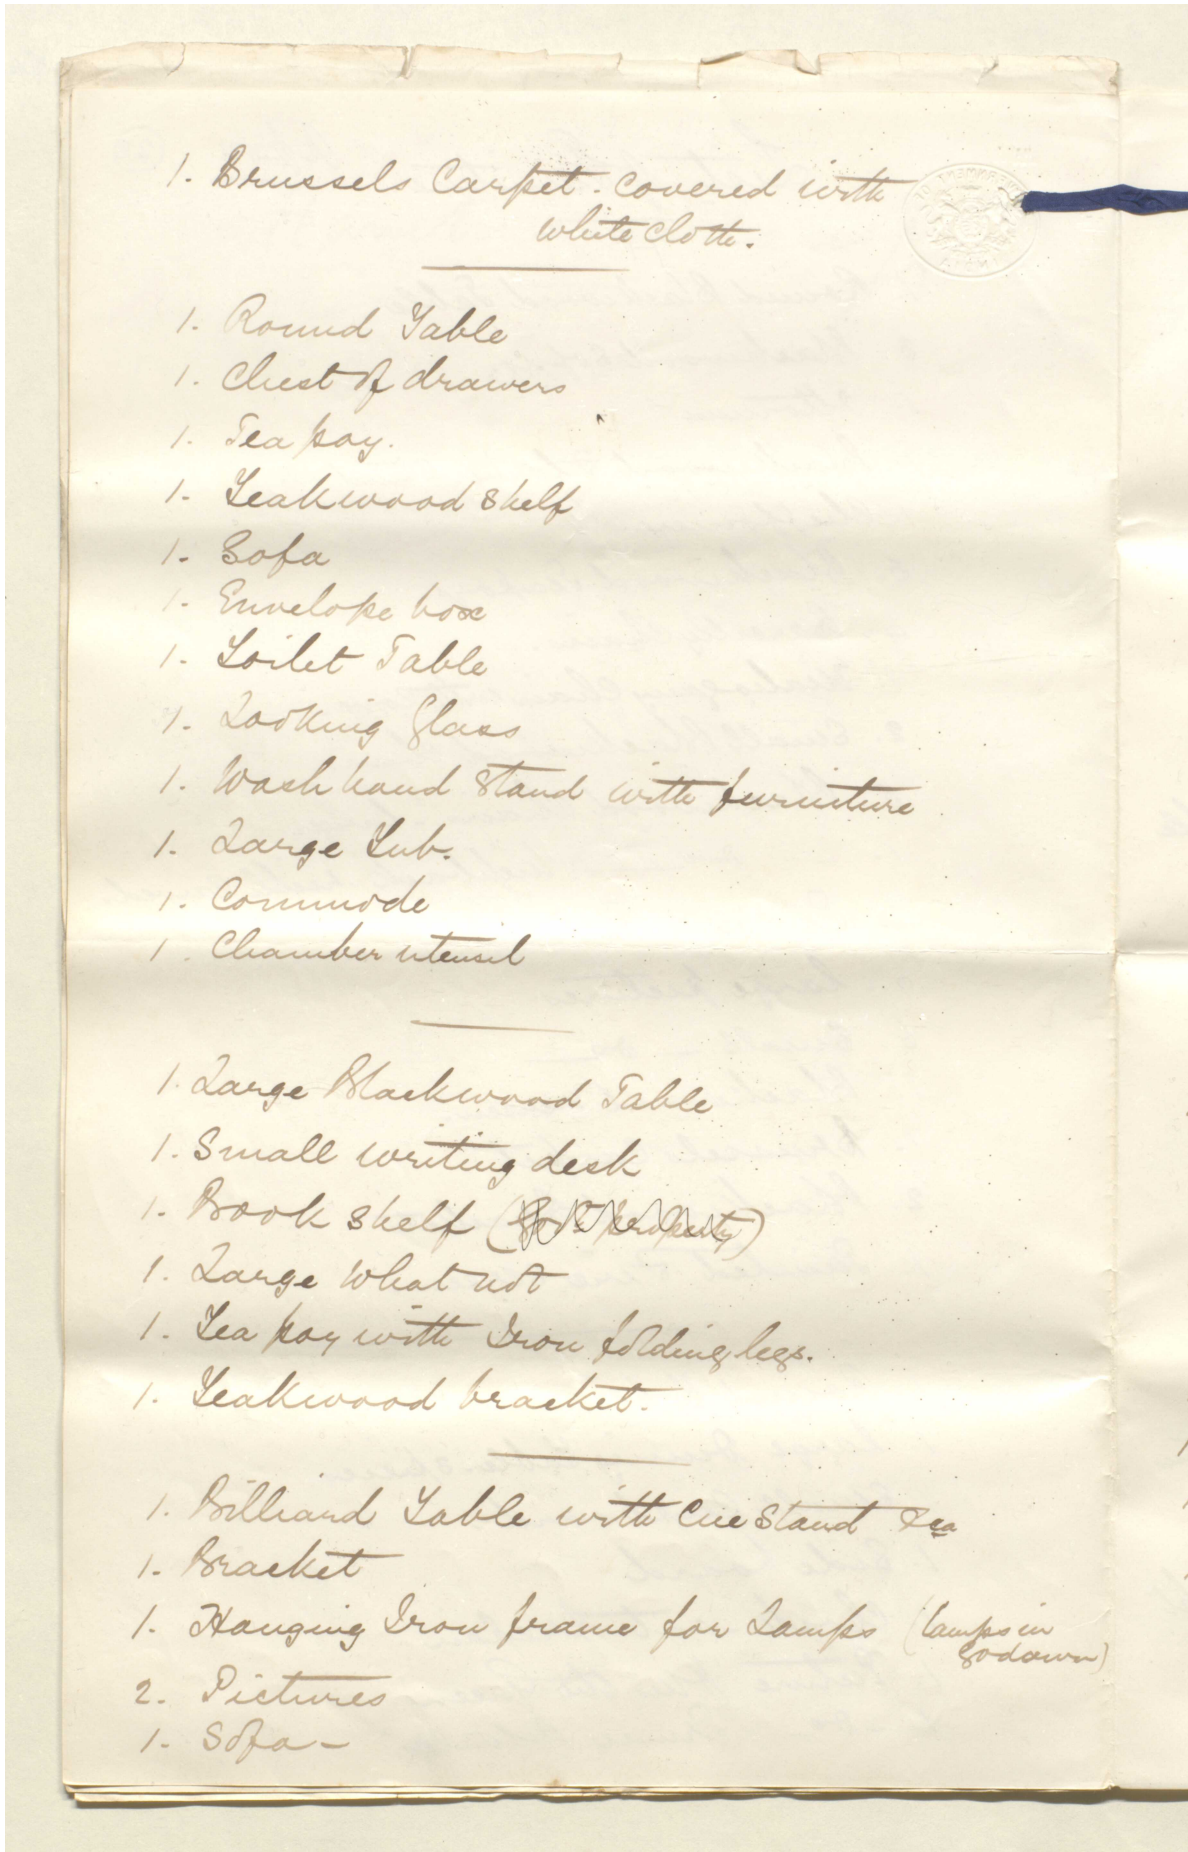 1. Brussels Carpet. covered with
white cloth.
1. Round Table
1. Chest of drawers
1. Tea poy.
1. Teakwood shelf
1. Sofa
1. Envelope box
1. Toilet Table
1. Looking Glass
1. Wash hand stand with furniture
1. Large Tub.
1. Commode
1. Chamber utensil
1. Large Blackwood Table
1. Small writing desk
1. Book shelf (Govt property)
1. Large what not
1. Tea poy with Iron folding legs.
1. Teakwood bracket.
1. Billiard Table with Cue Stand &ca
1. Bracket
1. Hanging Iron frame for Lamps (lamps in
godown)
2. Pictures
1. Sofa -